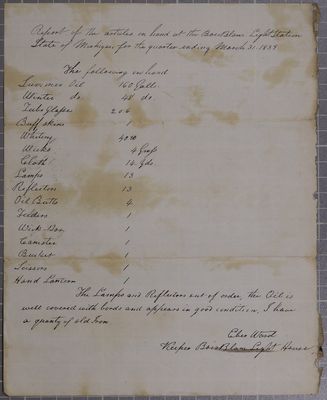 Report of the articles on hand at the Bois Blanc Light Station
State of Michigan for the quarter ending March 31 1859
The following on hand
Summer Oil 160 Galls.
Winter do. 48 do.
Tube Glasses 206
Buff skins 1
Whiting
Wicks 4 Gross
Cloth 14 Yds.
Lamps 13
Reflectors 13
Oil Butts 4
Feeders 1
Wick Box 1
Canister 1
Bucket 1
Scissors 1
Hand Lantern 1
The Lamps and Reflectors out of order, the Oil is
well covered with boards and appears in good condition, I have
a quanty of old Iron
Eber Ward
Keeper Bois Blanc Light House